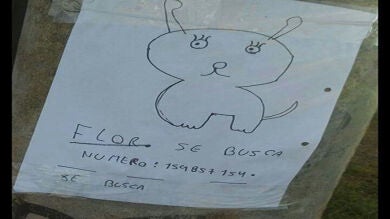 FLOR. SE BUSCA
NUMERO: 159857159.
SE BUSCA